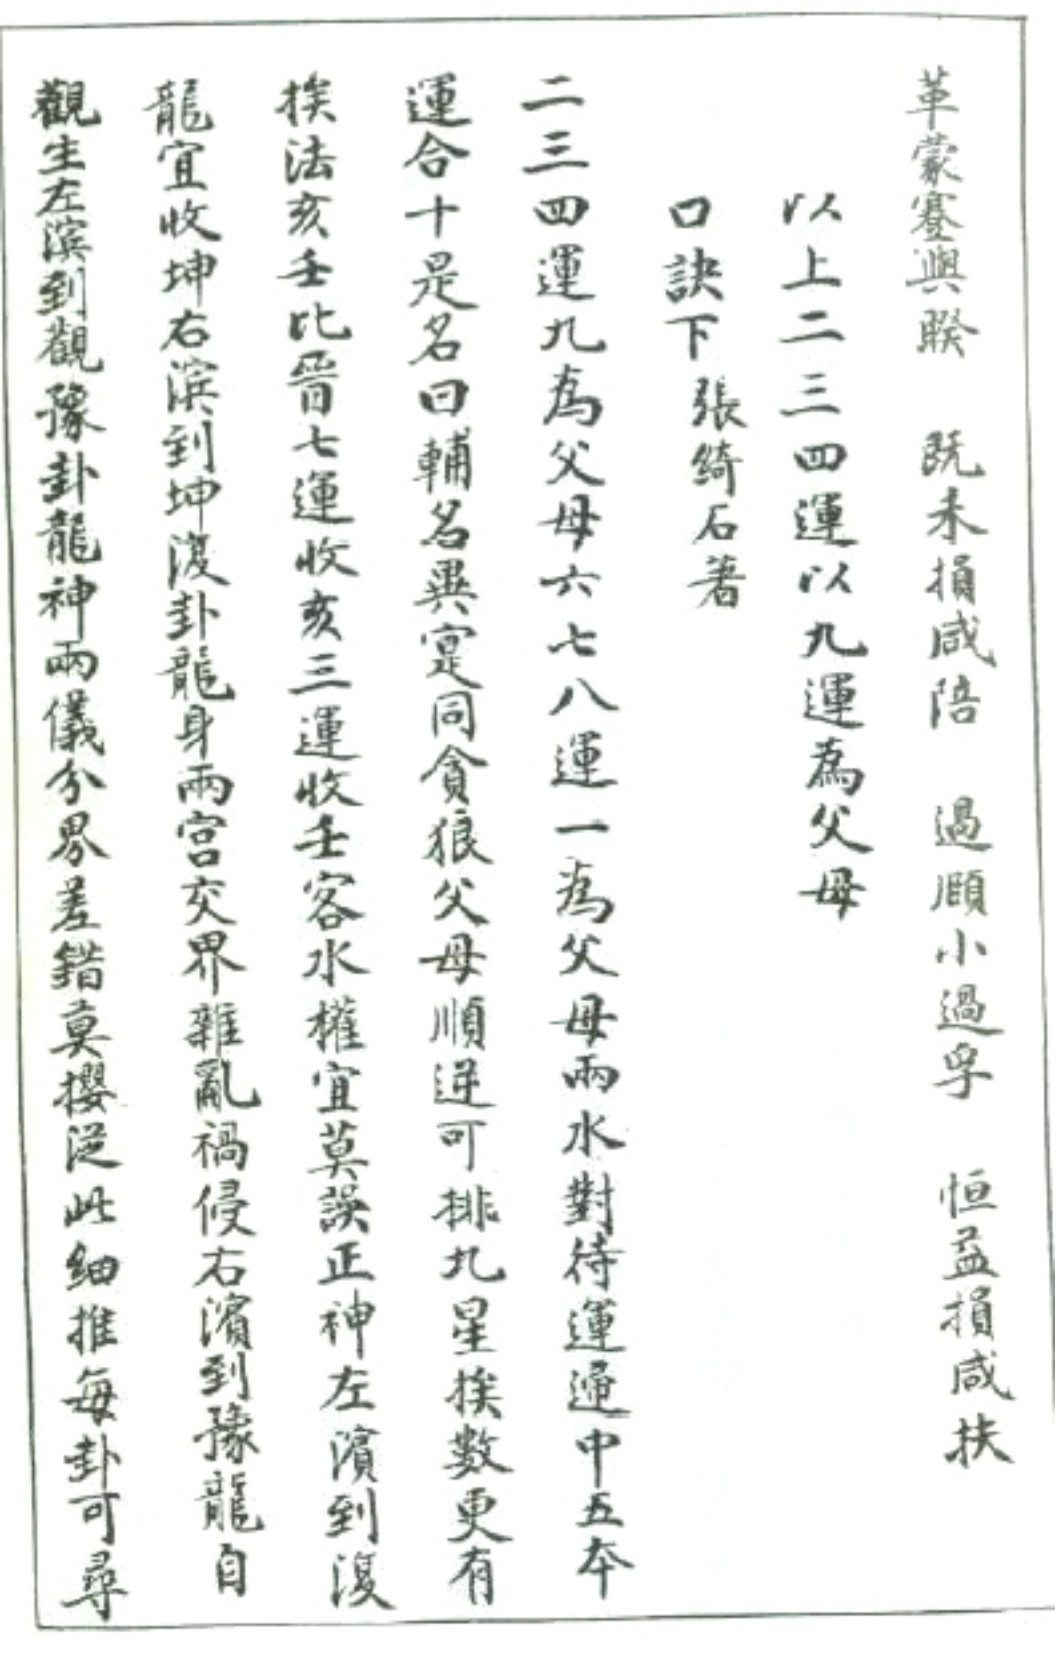 革蒙蹇與睽　既未損咸陪　過頤小過孚　恒益損咸扶
以上二三四運以九運為父母
口訣下　張綺石著
二三四運九為父母六七八運一為父母兩水對待運運中五本
運合十是名曰輔名異寔同貪狼父母順逆可排九星挨數更有
挨法亥壬比晉七運收亥三運收壬客水權宜莫誤正神左濱到復
龍宜收坤右滨到坤復卦龍身兩宮交界雜亂禍侵右濱到豫龍自
觀生左滨到觀豫卦龍神兩儀分界差錯莫攖從此細推每卦可尋